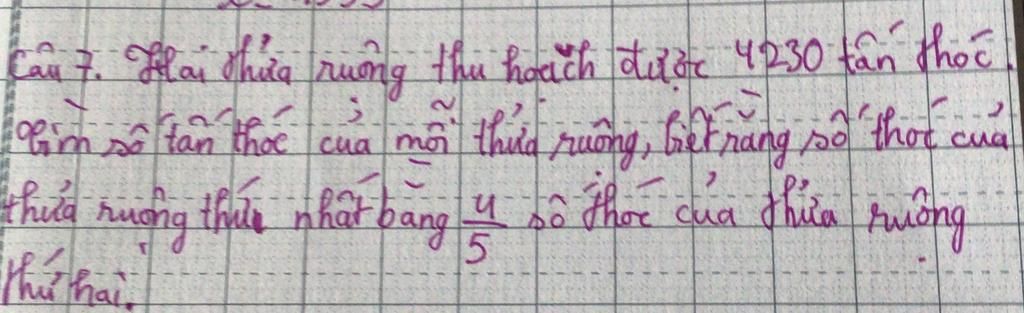 Câu 7. Hai thửa ruộng thu hoạch được 4230 tấn thóc.
Tìm số tấn thóc của mỗi thửa ruộng, biết rằng số thóc của
thửa ruộng thứ nhất bằng 4/5 số thóc của thửa ruộng
thứ hai.